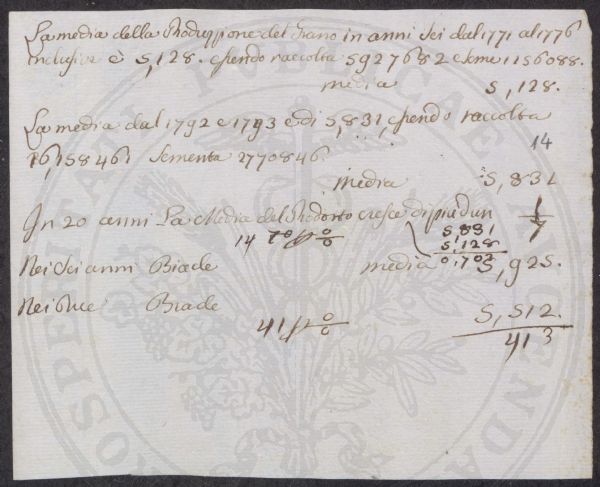 La media della Produzzione del Grano in anni Sei dal 1771 al 1776
inclusive è 5,128. essendo raccolta 5927682 e seme 1156088.
media 5,128.
La media dal 1792 e 1793 è di 5,831, essendo raccolta
16158461 Sementa 2770846.
14
media 5,831
In 20 anni La Media del Prodotto cresce di più d'un 1/7
14 p 0/0
5,831
5,128
0,702
Nei Sei anni Biade media 5,925.
Nei Due Biade 5,512.
41 p 0/0
413
PUBLICAE
PROSPERITATI